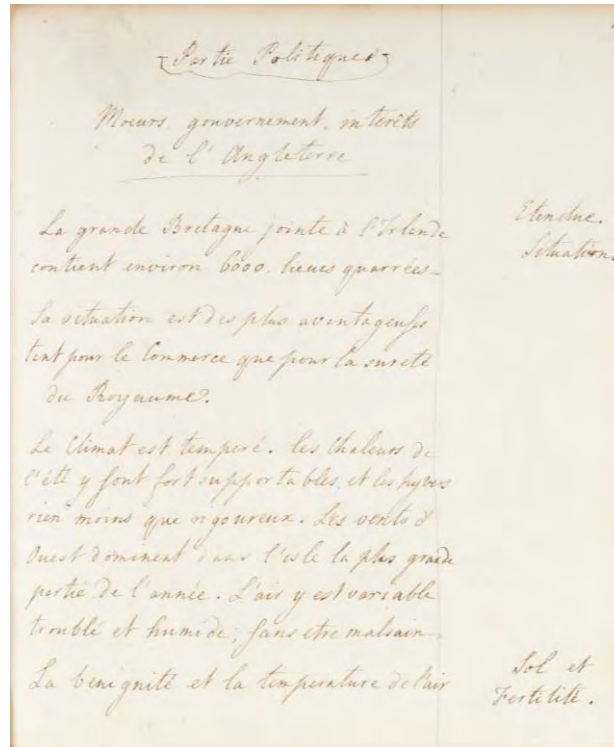 Partie Politique
Moeurs, gouvernement, interêts
de l'Angleterre
Etendue.
Situation.
La grande Bretagne jointe à l'Irlande
contient environ 6000. lieues quarrées
Sa situation est des plus aventageuses
tant pour le Commerce que pour la sureté
du Royaume.
Le Climat est temperé. les Chaleurs de
l'été y sont fort supportables, et les hyvers
rien moins que rigoureux. Les vents d'
Ouest dominent dans l'isle la plus grande
partie de l'année. L'air y est variable
troublé et humide; sans etre malsain
La benignité et la temperature de l'air
Sol et
Fertilité.